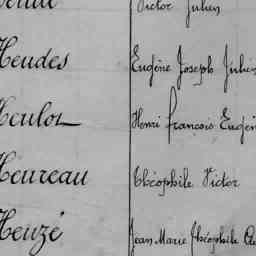 Victor Julien
Heudes Eugène Joseph Julien
Heulot Henri françois Eugèn
Heureau Théophile Victor
Heuzé Jean Marie Théophile